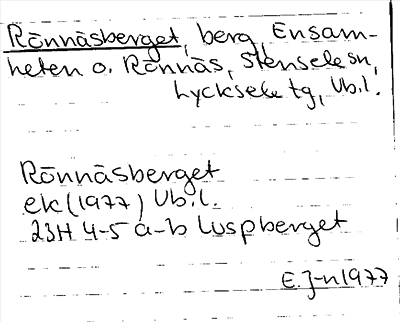 Rönnäsberget, berg, Ensam-
heten o. Rönnäs, Stensele sn,
Lycksele tg, Vb.l.
Rönnäsberget
ek (1977) Vb.l.
23H 4-5 a-b Luspberget
E.J-n 1977